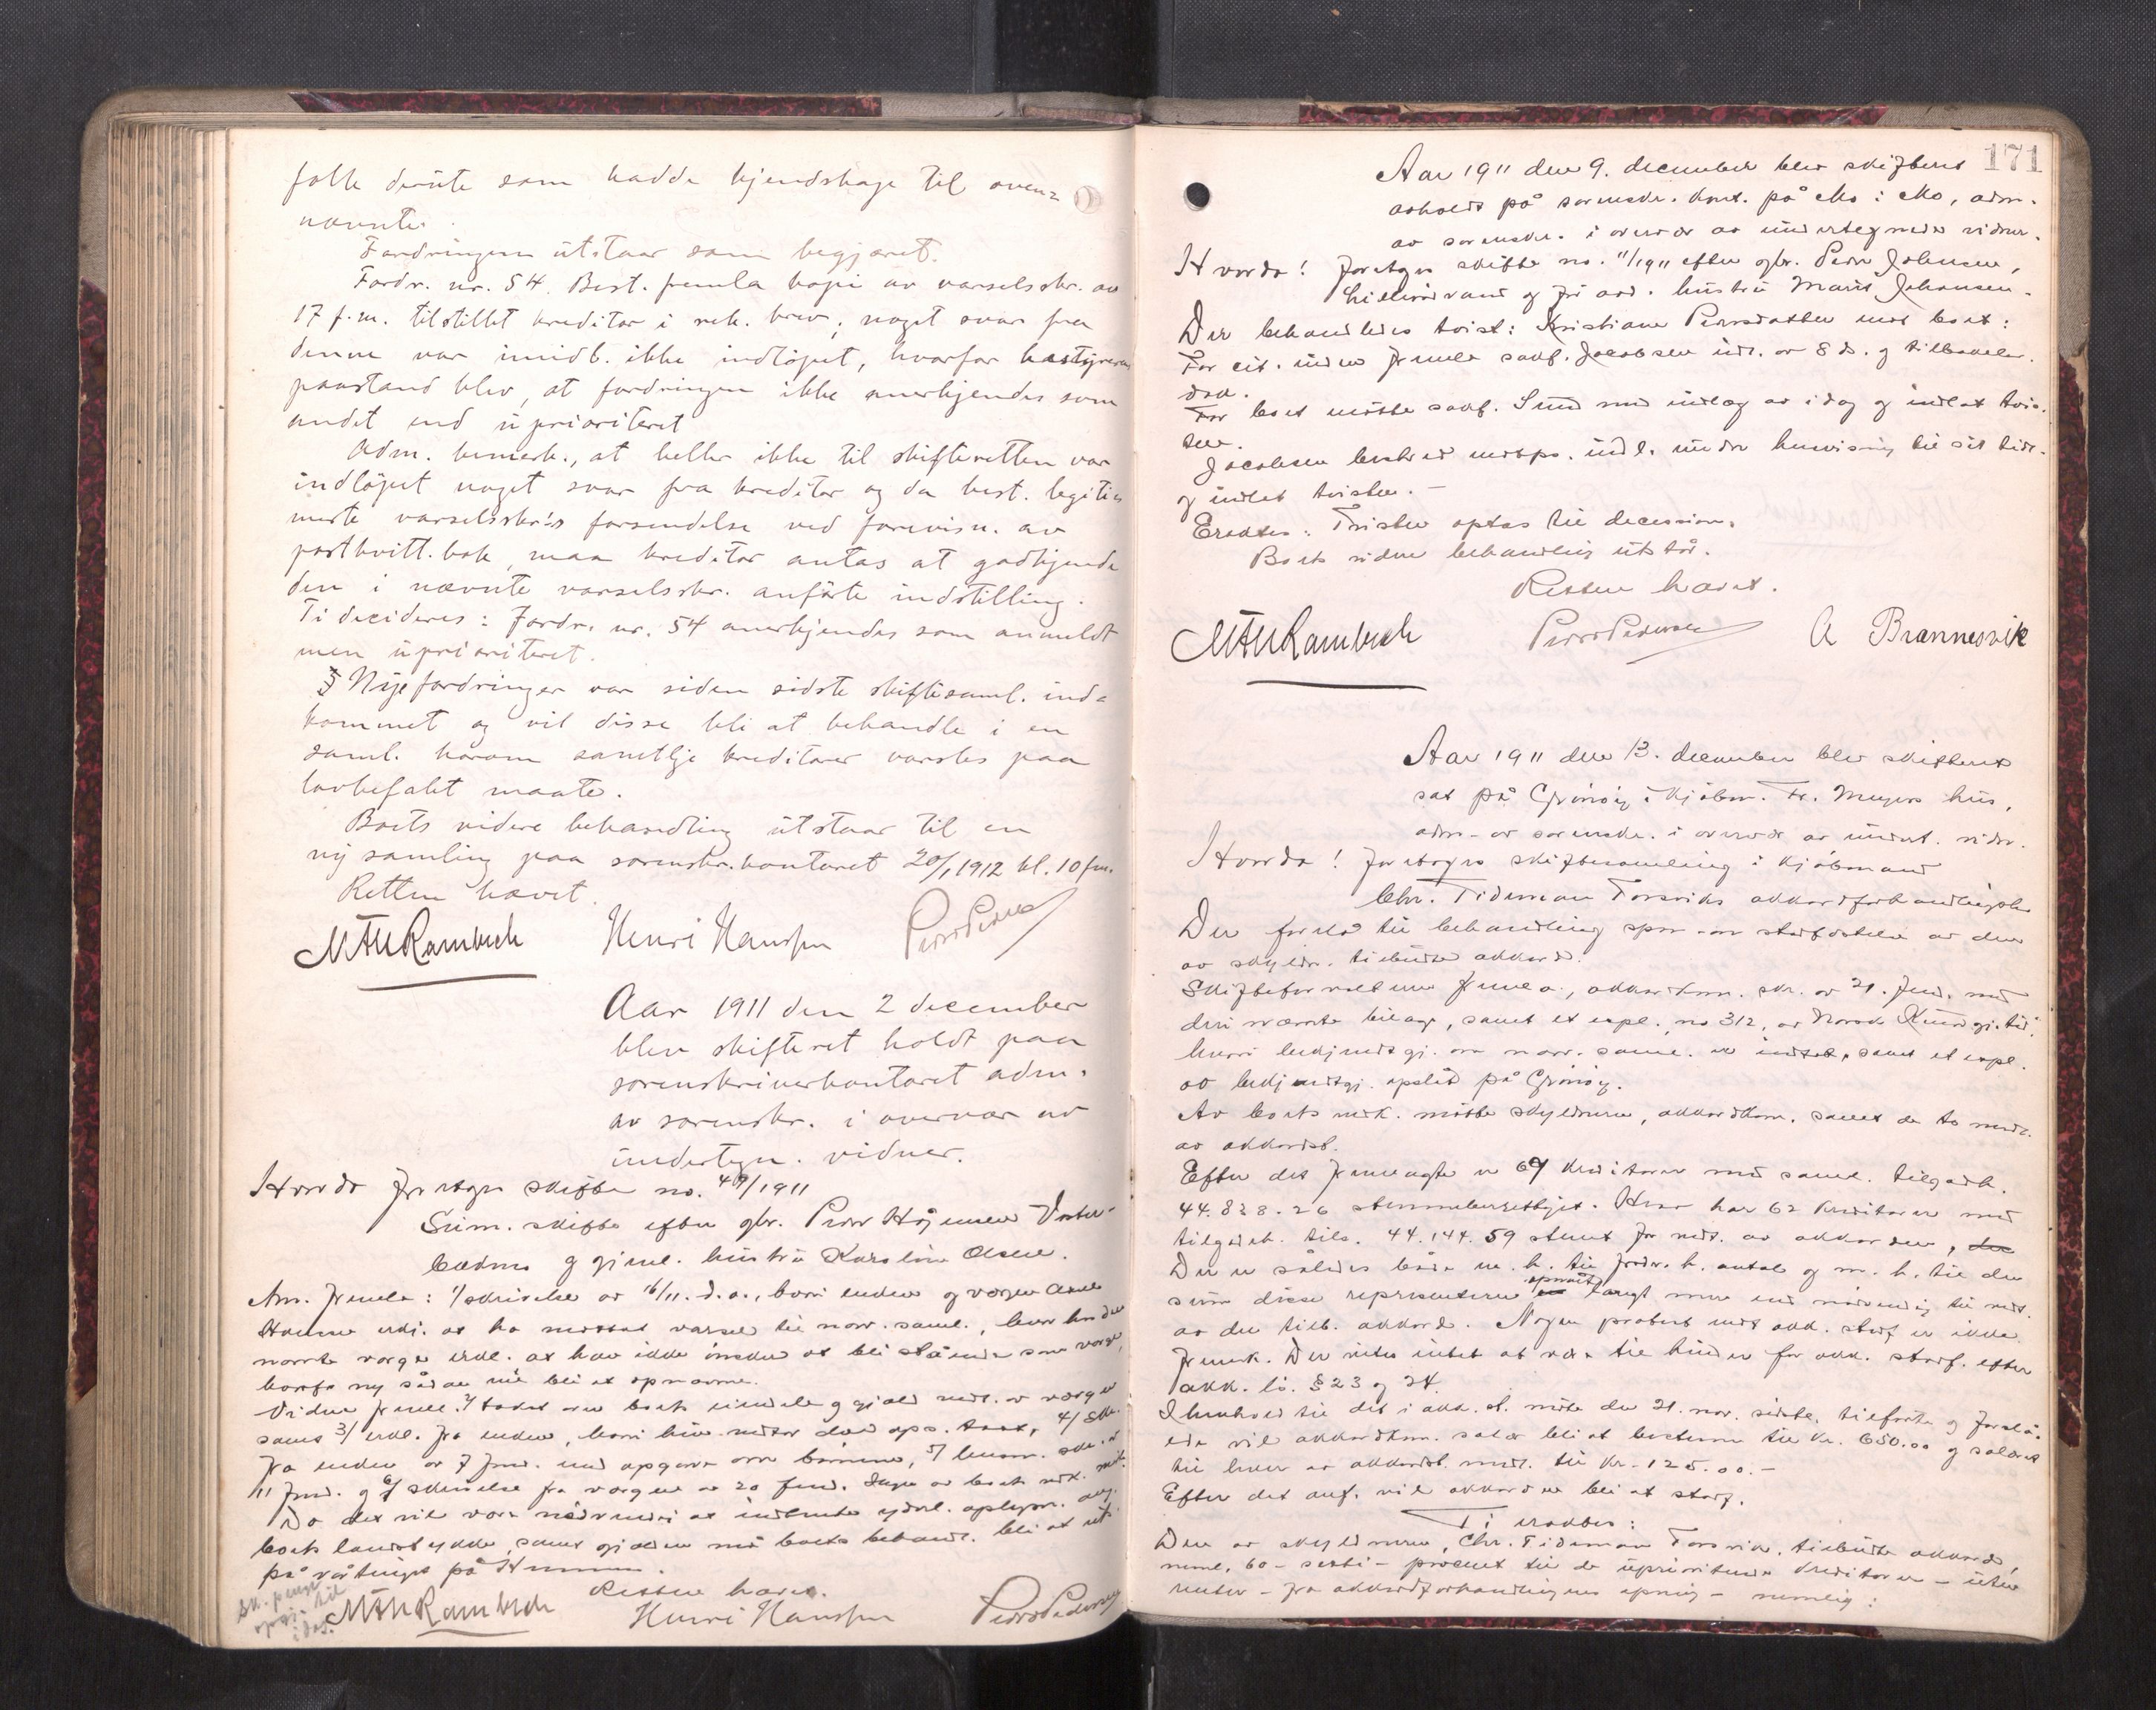 folk derute som hadde kjendskap til oven=
nævnte.
Fordringen utstaar som begjæret.
Fordr. nr. 54. Best. freml. kopi av varselsskr. av
17 f.m. tilstillet kreditor i rek. brev; noget svar fra
denne var imidl. ikke indløpet, hvorfor bostyrerens
paastand blev, at fordringen ikke anerkjendes som
andet end uprioriteret
Adm. bemerk., at heller ikke til skifteretten var
indløpet noget svar fra kreditor og da best. legiti=
merte varselsskr.'s forsendelse ved forevisn. av
postkvitt.bok, maa kreditor antas at godkjende
den i nævnte varselsskr. anførte indstilling.
Ti decideres: Fordr. nr. 54 anerkjendes som anmeldt
men uprioriteret.
3 Nye fordringer var siden sidste skiftesaml. ind=
kommet og vil disse bli at behandle i en
saml. hvorom samtlige kreditorer varsles paa
lovbefalet maate.
Boets videre behandling utstaar til en
ny samling paa sorenskr.kontoret 20/1 1912 kl. 10 fm.
Retten hævet.
MAURambech Henri Hanssen Peder Pedersen
Aar 1911 den 2 december
blev skifteret holdt paa
sorenskriverkontoret adm.
av sorenskr. i overvær av
undertegn. vidner.
Hvorda foretages skifte no. 49/1911
Sum. skifte efter gbr. Peder Højensen Vester-
og gjenl. hustru Karoline Olsen.
Adm. freml.: 1/ skrivelse av 16/11 d.a., hvori enken og værgen
erkl. at ha mottat varsel til nærv. saml., hvorhos den
nævnte værge erkl. at han ikke ønsker at bli stående som værge,
hvorfor ny sådan må bli at opnævne.
Videre freml. 2/ takst over boets eiendele og gjæld medt. av værgen
samt 3/ erkl. fra enken, 4/ skr.
fra enken av 7 fmd. med opgave over børnene, 5/ skr. av
11 fmd. og 6/ skrivelse fra værgen av 20 fmd. Ingen av boets vedk. møtte.
Da det vil være nødvendig at indhente yderl. oplysn. ang.
boets samt gjælden må boets behandl. bli at uts.
på vårtinget på
Retten hævet.
MAURambech Henri Hanssen Peder Pedersen
171
Aar 1911 den 9. december blev skifteret
avholdt på sorenskr. kont. på Mo i Mo, adm.
av sorenskr. i overvær av undertegnede vidner.
Hvorda! foretages skifte no. 11/1911 efter gbr. Peder Johnsen,
og før avd. hustru Marit Johansen.
Der behandledes tvist: Kristiane Pedersdatter mot boet:
For cit. inden freml. sakf. Jacobsen indl. av 8 ds. og tilbakelev.
dok.
For boet møtte sakf. Sund med indlæg av idag og indlot tvis-
ten.
Jacobsen bestred motps. indl. under henvisning til sit tidl.
og indlot tvisten.-
Eragtes: Tvisten optas til decession.
Boets videre behandling utstår.
Retten hævet.
MAURambech Peder Pedersen A Brænnesvik
Aar 1911 den 13. december blev skifteret
sat på Grønøy i kjøbm. Fr. Meyers hus,
adm. av sorenskr. i overvær av undert. vidn.
Hvorda! foretages skiftesamling i kjøbmand
Chr. Tideman Forsviks akkordforhandlingsbo
Der forelå til behandling spm. om stadfæstelse av den
av skyldn. tilbudte akkord.
Skifteforvalteren freml., akkordkom. skr. av 21. fmd. med
deri nævnte bilage, samt et expl. no 312, av Norsk Kundgj.tid.
hvori bekjendtgj. om nærv. saml. er indtat, samt et expl.
av bekjendtgj. opslåt på Grønøy.
Av boets vedk. møtte skyldneren, akkordkom. samt de to medl.
av akkordst.
Efter det fremlagte er 67 kreditorer med saml. tilgodeh.
44.838.26 stemmeberettiget. Herav har 62 kreditorer med
tilgodeh. tils. 44.144.59 stemt for vedt. av akkorden,
Der er således både m. h. til fordr. h. antal og m. h. til den
sum disse representerer opnået langt mere end nødvendig til vedt.
av den tilb. akkord. Nogen protest mot akk. stadf. er ikke
fremk. Der vites intet at være til hinder for akk. stadf. efter
akk. lo. § 23 og 24.
I henhold til det i akk. st. møte den 21. nov. sidstl. tilførte og foreslå-
ede vil akkordkom. salær bli at bestemme til kr. 650.00 og salæret
til hver av akkordst. medl. til kr. 125.00.-
Efter det anf. vil akkorden bli at stadf.
Ti eragtes:
Den av skyldneren, Chr. Tideman Forsvik, tilbudte akkord,
neml. 60 - seksti - procent til de uprioriterte kreditorer - uten
renter - fra akkordforhandlingens åpning - nemlig: